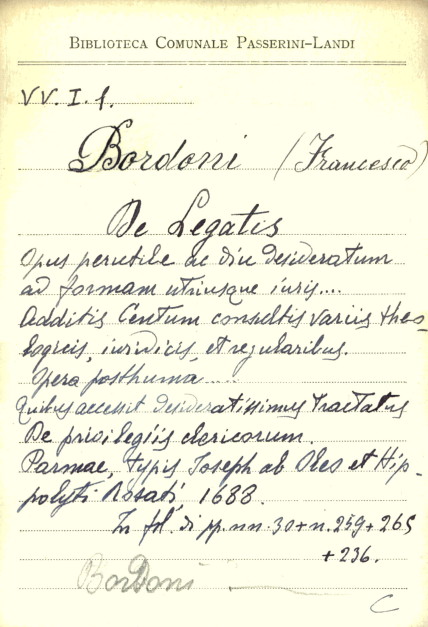 BIBLIOTECA COMUNALE PASSERINI-LANDI
VV. I. 1.
Bordoni (Francesco)
De Legatis
Opus perutile ac diu desideratum
ad formam utriusque iuris....
Additis Centum consultis variis theo-
logicis, iuridicis, et regularibus.
Opera posthuma.....
Quibus accessit desideratissimus tractatus
De privilegiis clericorum.
Parmae, typis Joseph ab Oleo et Hip-
polyti Rosati, 1688.
In fol. di pp. nn. 30 + n. 259 + 265
+ 236.
Bordoni
C